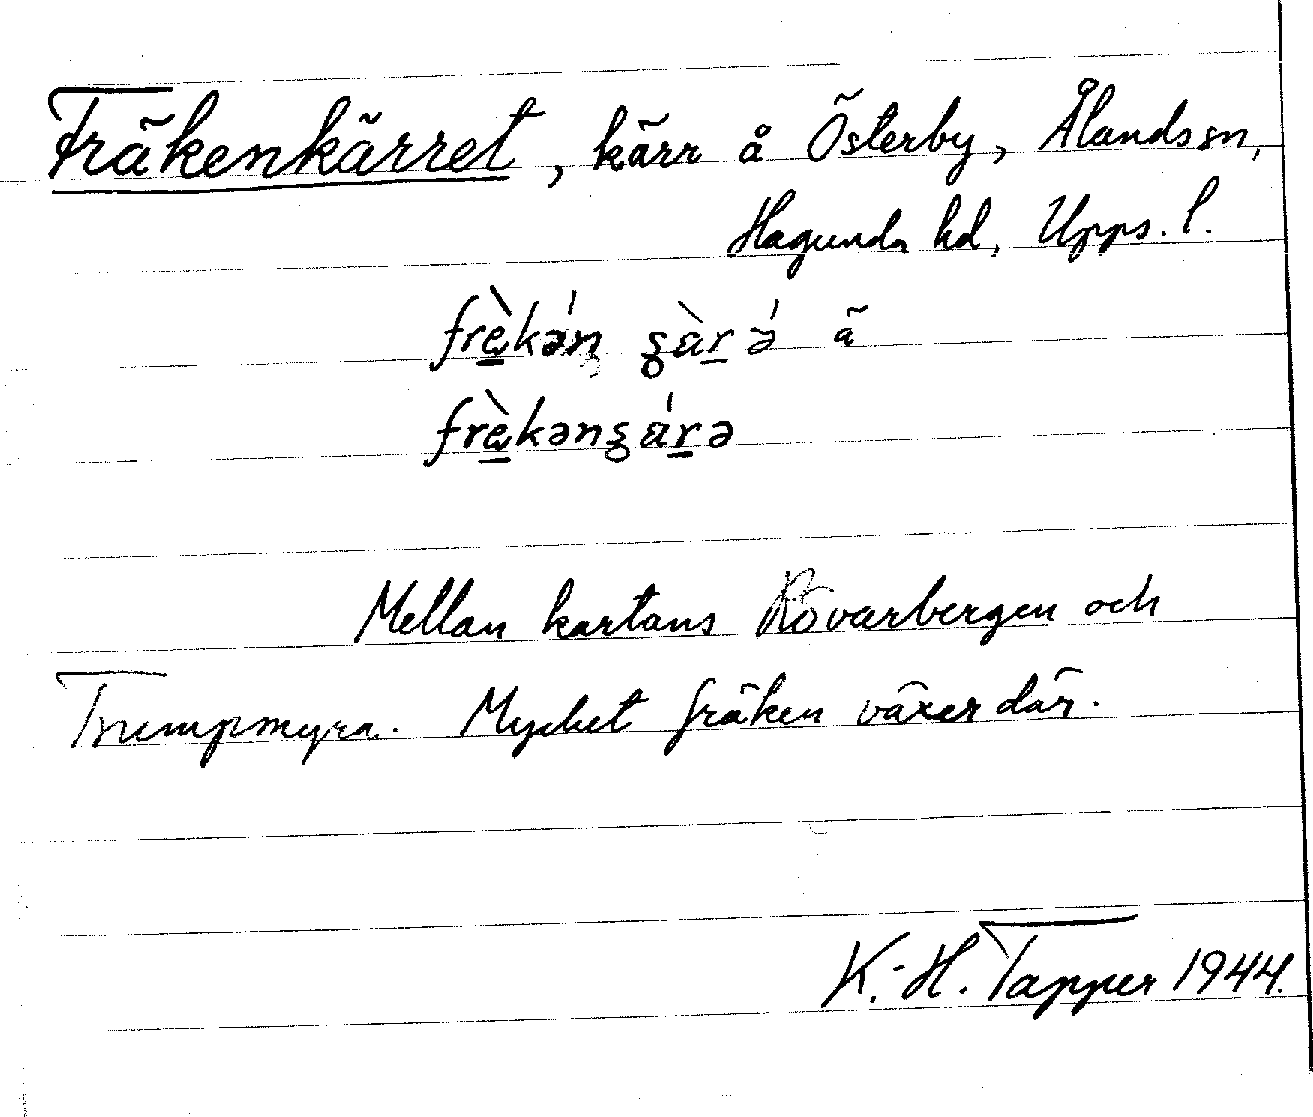 Fräkenkärret, kärr å Österby, Ålands sn,
Hagunda hd, Upps. l.
frè̱kə́n ʂàṟə́ ä
frè̱kənʂáṟə
Mellan kartans Rövarbergen och
Trumpmyra. Mycket fräken växer där.
K.-H. Tapper 1944.